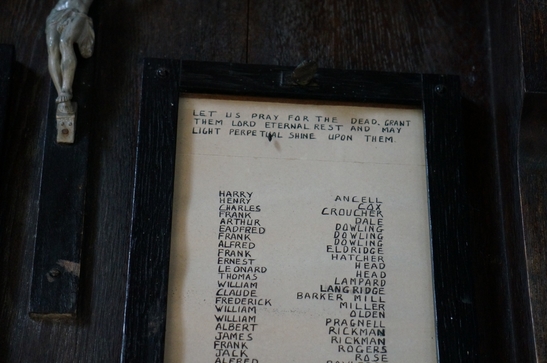 LET US PRAY FOR THE DEAD, GRANT
THEM LORD ETERNAL REST AND MAY
LIGHT PERPETUAL SHINE UPON THEM.
HARRY ANCELL
HENRY COX
CHARLES CROUCHER
FRANK DALE
ARTHUR DOWLING
EADFRED DOWLING
FRANK DOWLING
ALFRED ELDRIDGE
FRANK HATCHER
ERNEST HEAD
LEONARD HEAD
THOMAS LAMPARD
WILLIAM LANGRIDGE
CLAUDE BARKER MILL
FREDERICK MILLER
WILLIAM OLDEN
WILLIAM PRAGNELL
ALBERT RICKMAN
JAMES RICKMAN
FRANK ROGERS
JACK ROSE
ALFRED